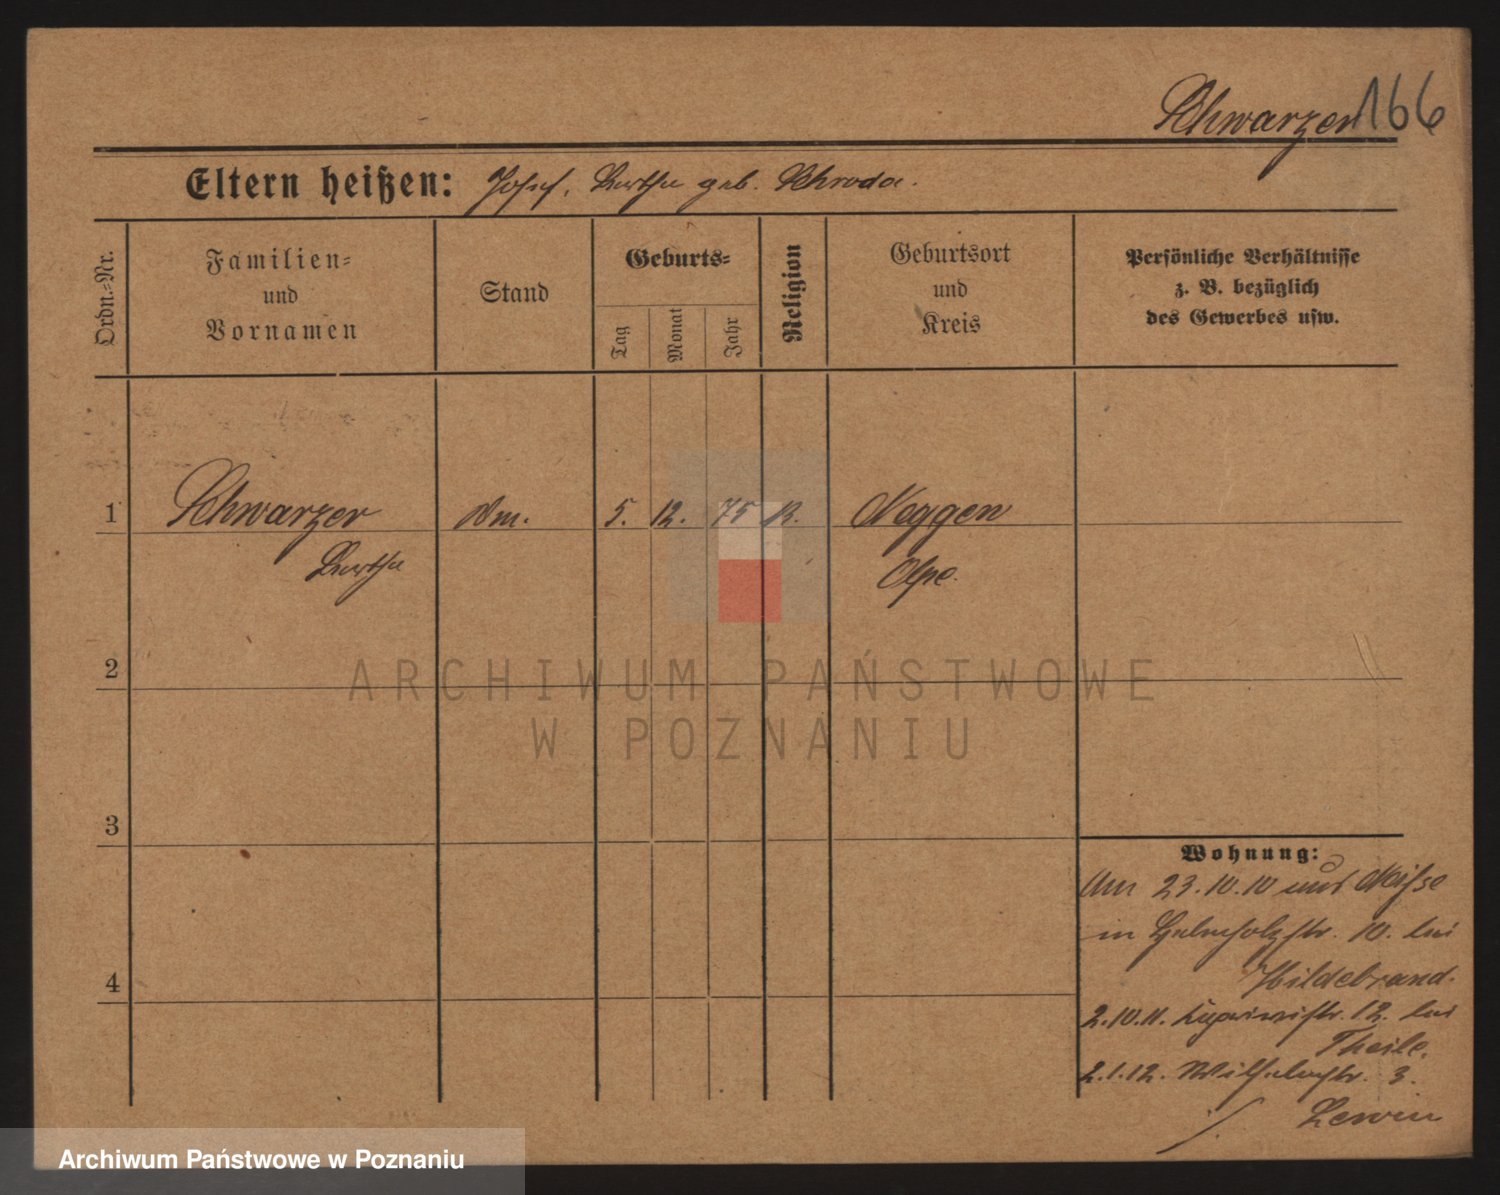 Schwarzer 166
Eltern heißen: Josef, Bertha geb. Schroda.
Ordn.-Nr.
Familien-
und
Vornamen
Stand
Geburts-
Tag
Monat
Jahr
Religion
Geburtsort
und
Kreis
Persönliche Verhältnisse
z. B. bezüglich
des Gewerbes usw.
1 Schwarzer 5. 12. 75 k. Meggen
Bertha Olpe.
2
3
4
Wohnung:
Am 23.10.10 aus Neisse
in Helmholzstr. 10. bei
Hildebrand.
2.10.11. 12. bei
Theile.
2.1.12. Wilhelmstr. 3.
Lewin
ARCHIWUM PAŃSTWOWE
W POZNANIU
Archiwum Państwowe w Poznaniu